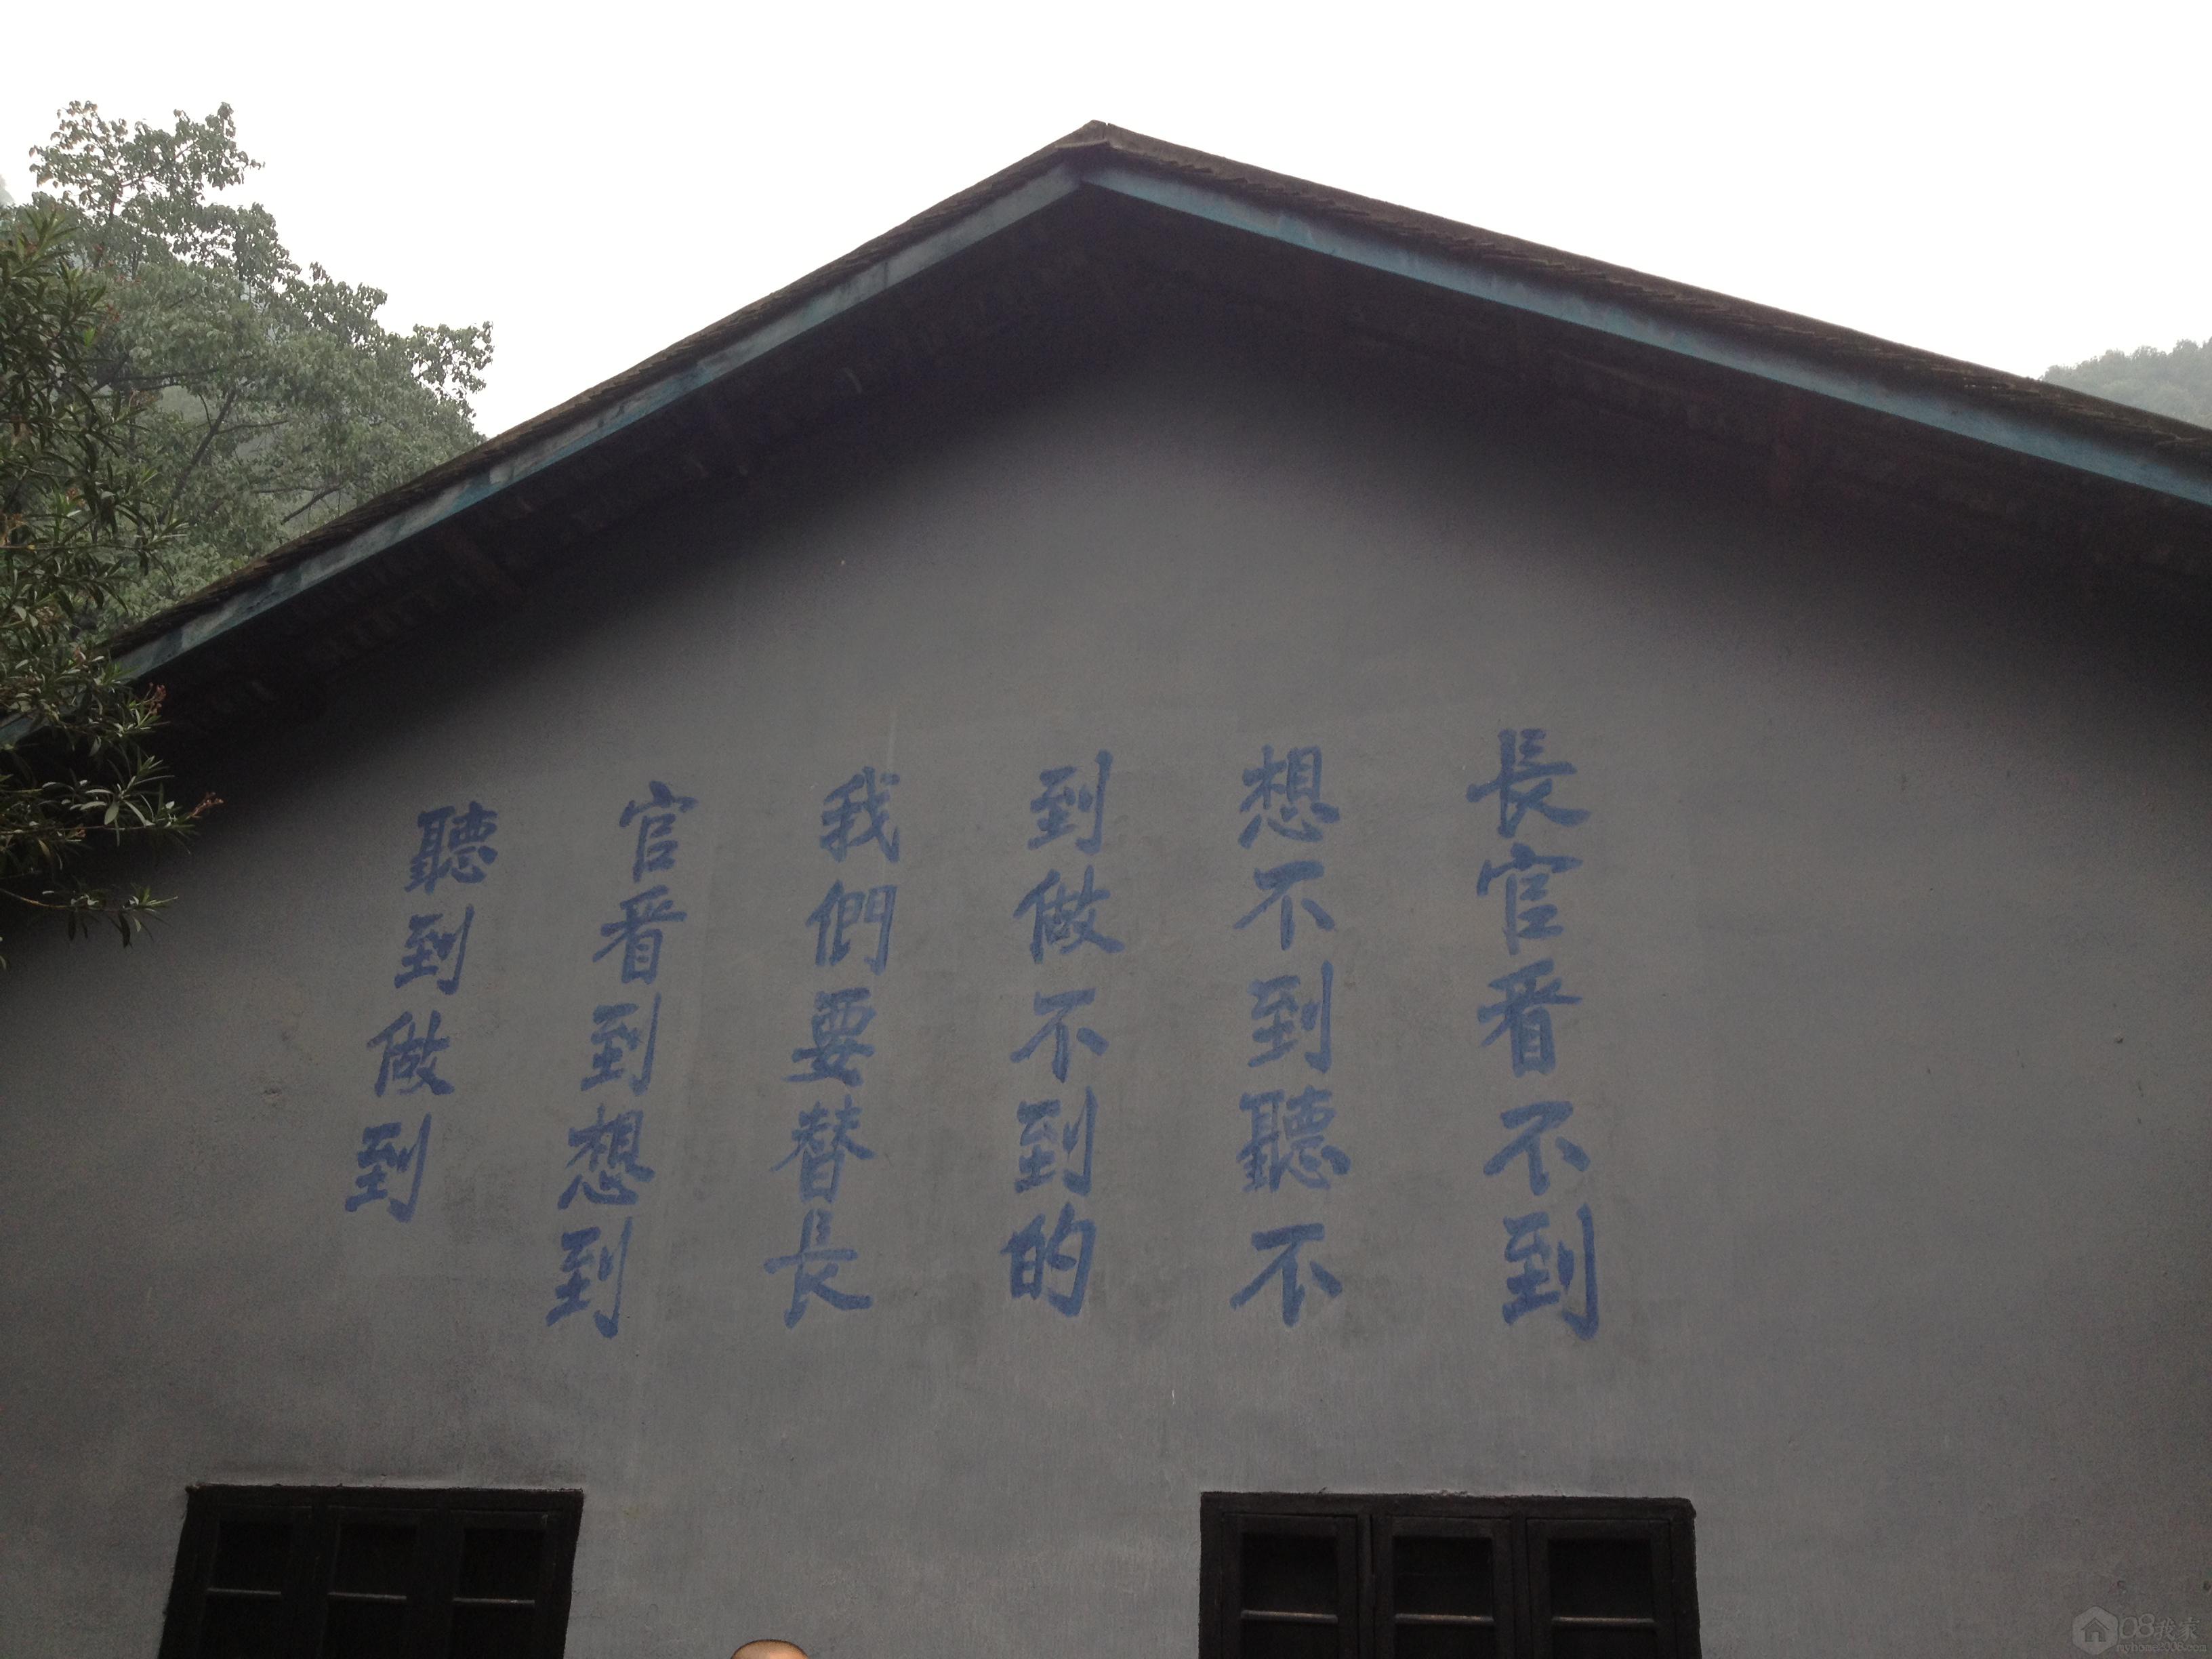 長官看不到
想不到聽不
到做不到的
我們要替長
官看到想到
聽到做到
08我家
myhome2008.com